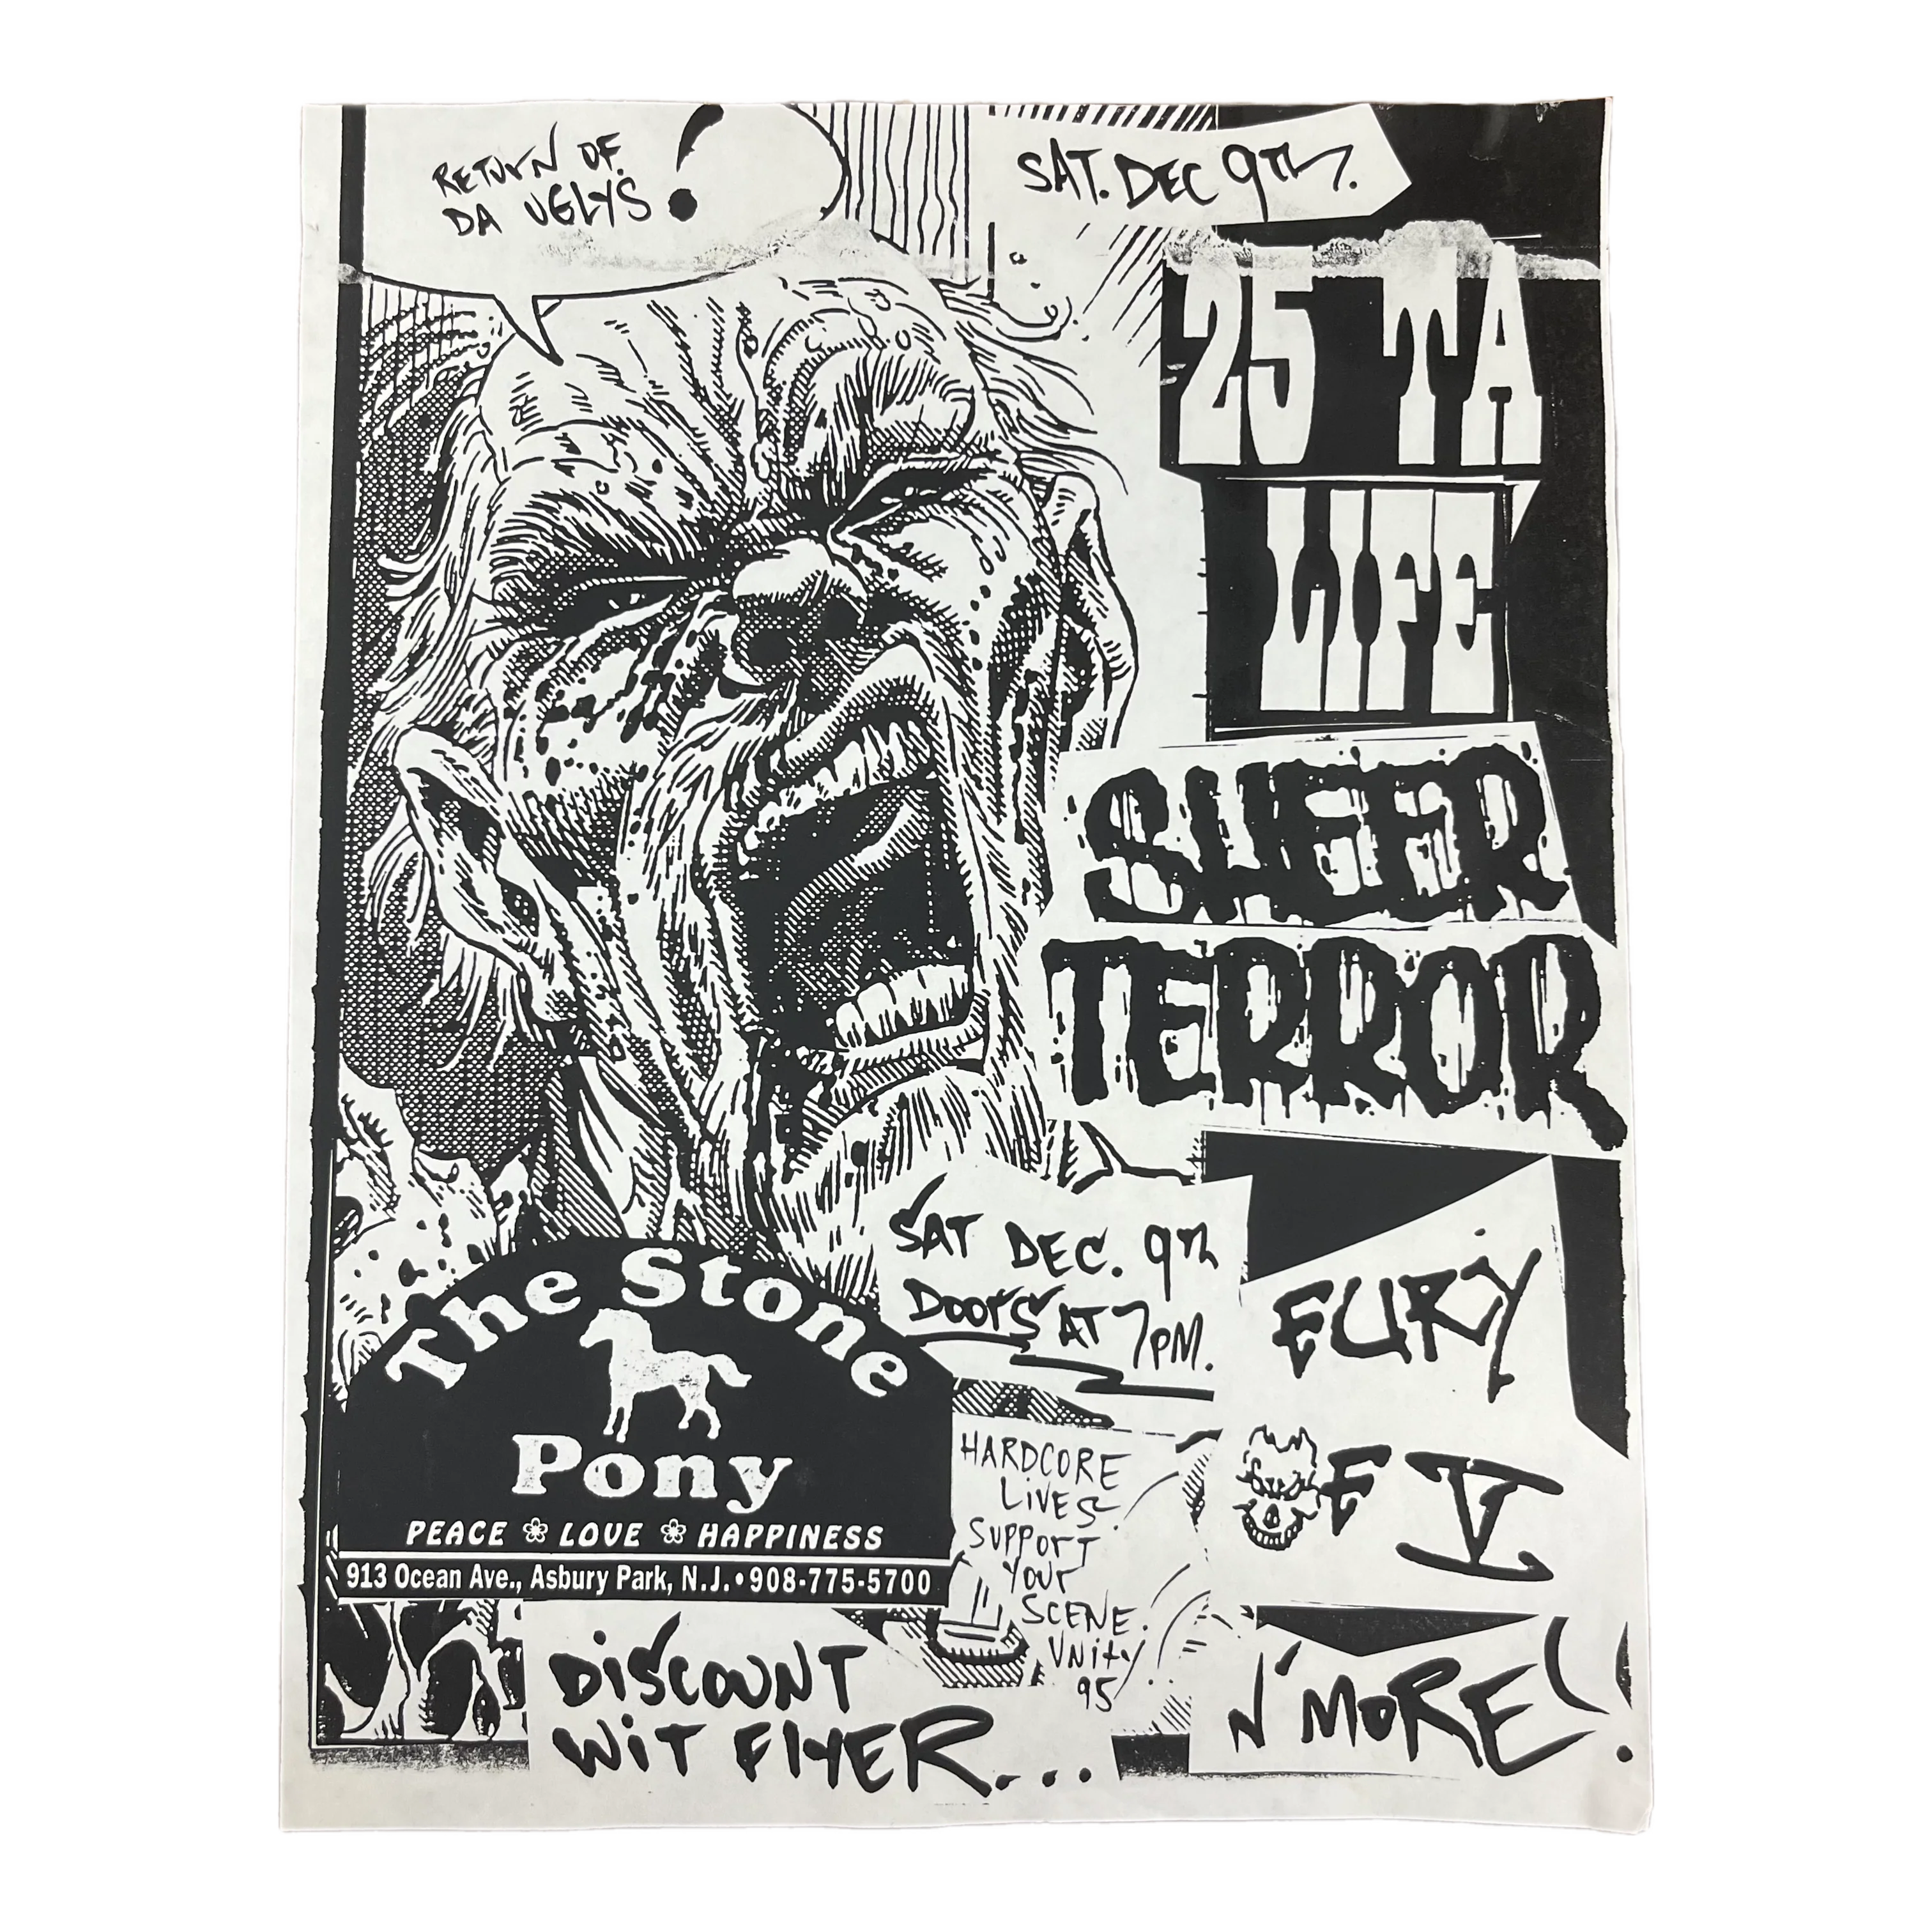 RETURN OF
DA UGLYS!
SAT. DEC 9TH.
25 TA
LIFE
SHEER
TERROR
SAT DEC. 9TH
DOORS AT 7PM.
FURY
OF V
N' MORE!
The Stone
Pony
PEACE LOVE HAPPINESS
913 Ocean Ave., Asbury Park, N.J. • 908-775-5700
HARDCORE
LIVES.
SUPPORT
YOUR
SCENE.
UNITY
95
DISCOUNT
WIT FLYER...